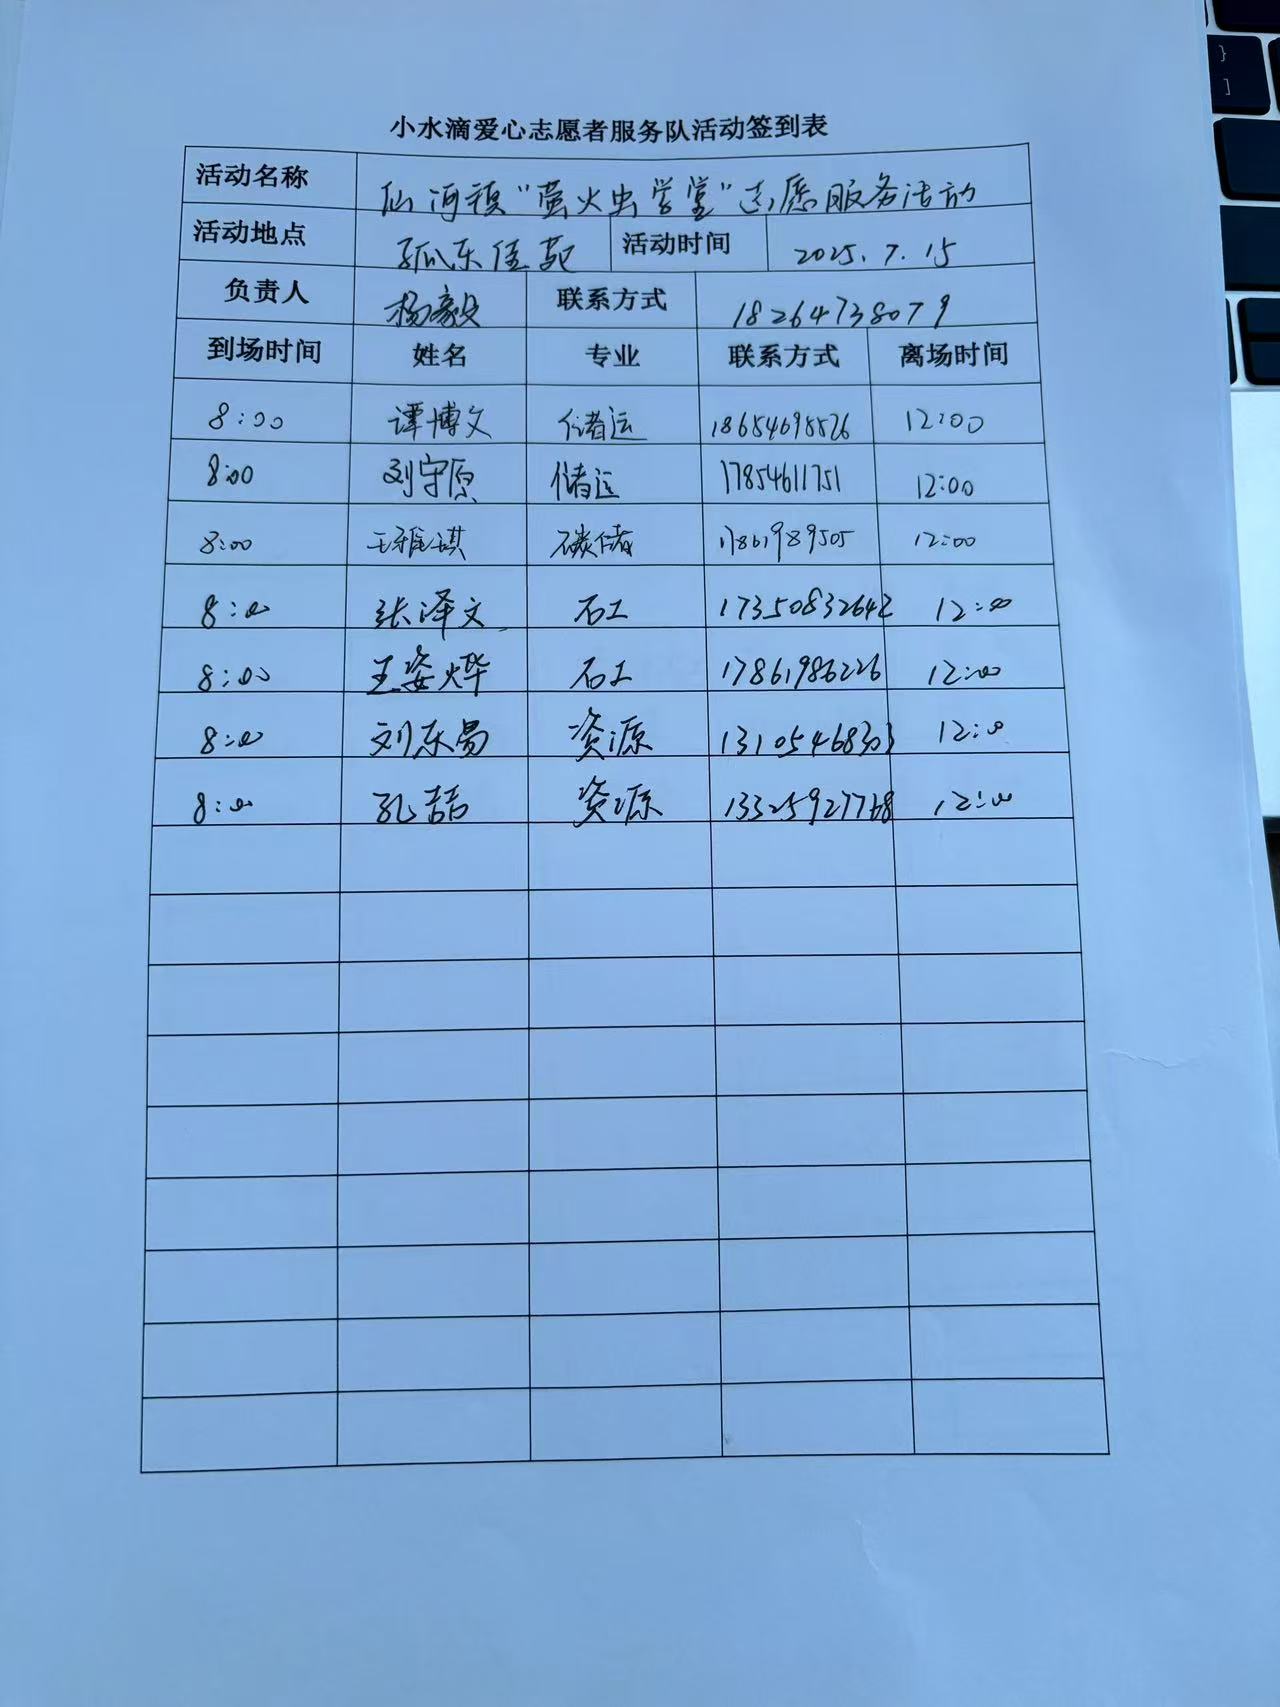 小水滴爱心志愿者服务队活动签到表
活动名称 仙河镇“萤火虫学堂”志愿服务活动
活动地点 孤东佳苑 活动时间 2025.7.15
负责人 杨毅 联系方式 18264738079
到场时间 姓名 专业 联系方式 离场时间
8:00 谭博文 储运 18654695526 12:00
8:00 刘守原 储运 17854611751 12:00
8:00 王雅琪 碳储 17861989505 12:00
8:00 张泽文 石工 17350832642 12:00
8:00 王姿烨 石工 17861986226 12:00
8:00 刘东昌 资源 13105468303 12:00
8:00 孔喆 资源 13325927768 12:00
}
]